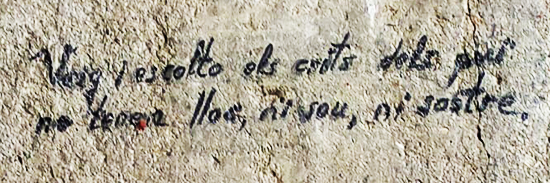 Vaig i escolto els crits dels qui
no tenen lloc, ni sou, ni sostre.